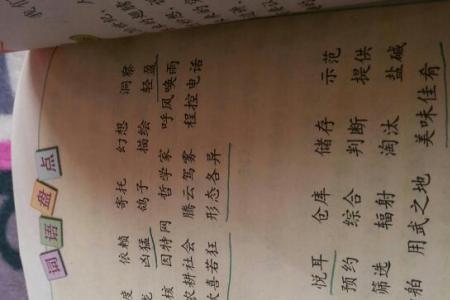 词语盘点
度 依赖 寄托 幻想 洞察
凶猛 鸽子 描绘 轻盈
核 因特网 哲学家 呼风唤雨
农耕社会 腾云驾雾 程控电话
喜若狂 形态各异
悦耳 仓库 储存 示范
预约 综合 判断 提供
筛选 辐射 淘汰 盐碱
舶 用武之地 美味佳肴